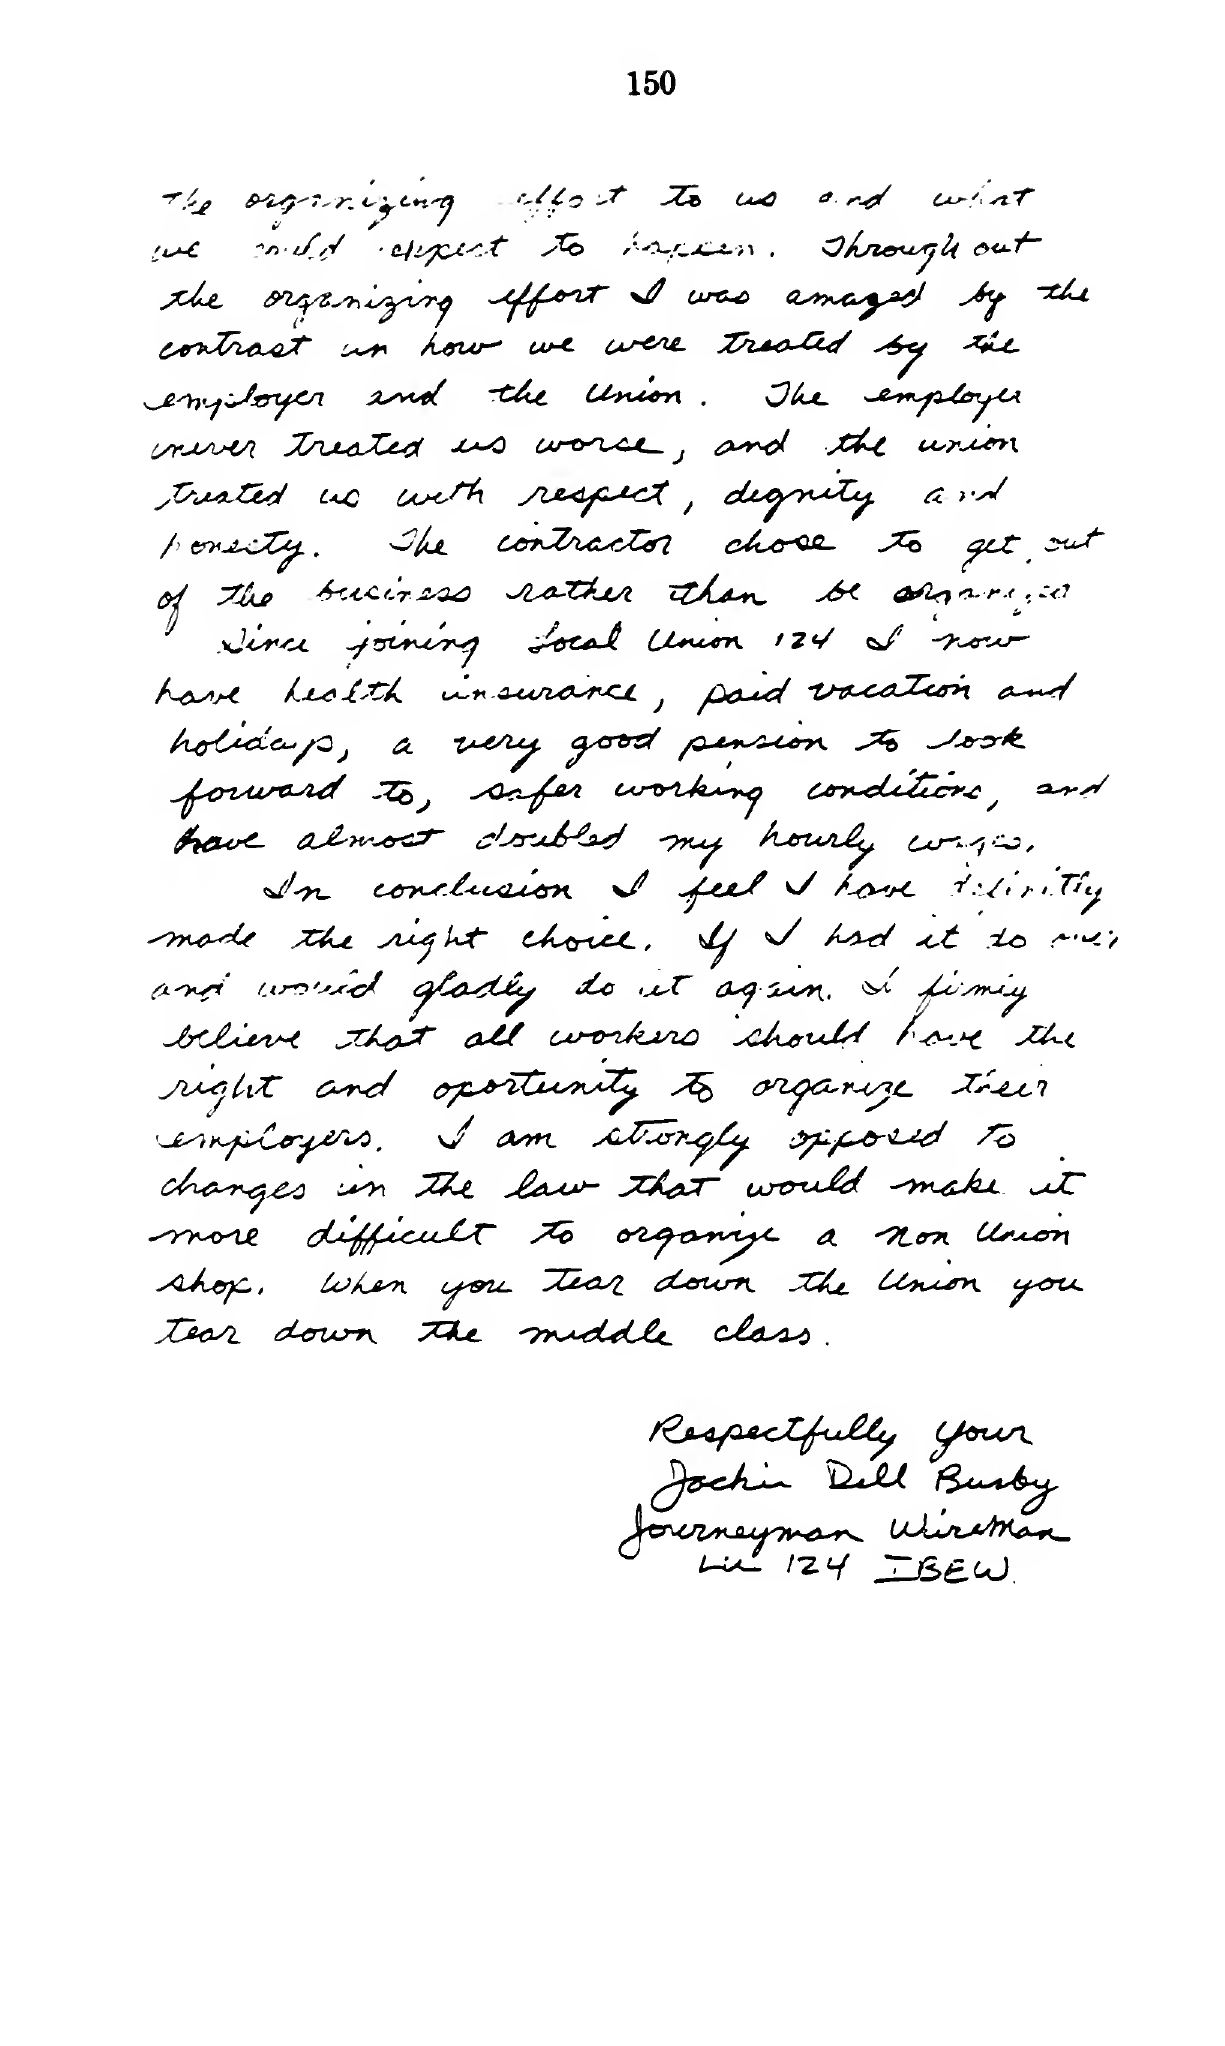 150
the organizing effort to us and what
we could expect to happen. Through out
the organizing effort I was amazed by the
contrast in how we were treated by the
employer and the Union. The employer
never treated us worse, and the union
treated us with respect, dignity and
honesty. The contractor chose to get out
of the business rather than be organized
Since joining Local Union 124 I now
have health insurance, paid vacation and
holidays, a very good pension to look
forward to, safer working conditions, and
have almost doubled my hourly wages.
In conclusion I feel I have definitly
made the right choice. If I had it to over
and would gladly do it again. I firmly
believe that all workers should have the
right and oportunity to organize their
employers. I am strongly opposed to
changes in the law that would make it
more difficult to organize a non Union
shop. When you tear down the Union you
tear down the middle class.
Respectfully Your
Jackie Dell Busby
Journeyman WireMan
LU 124 IBEW.